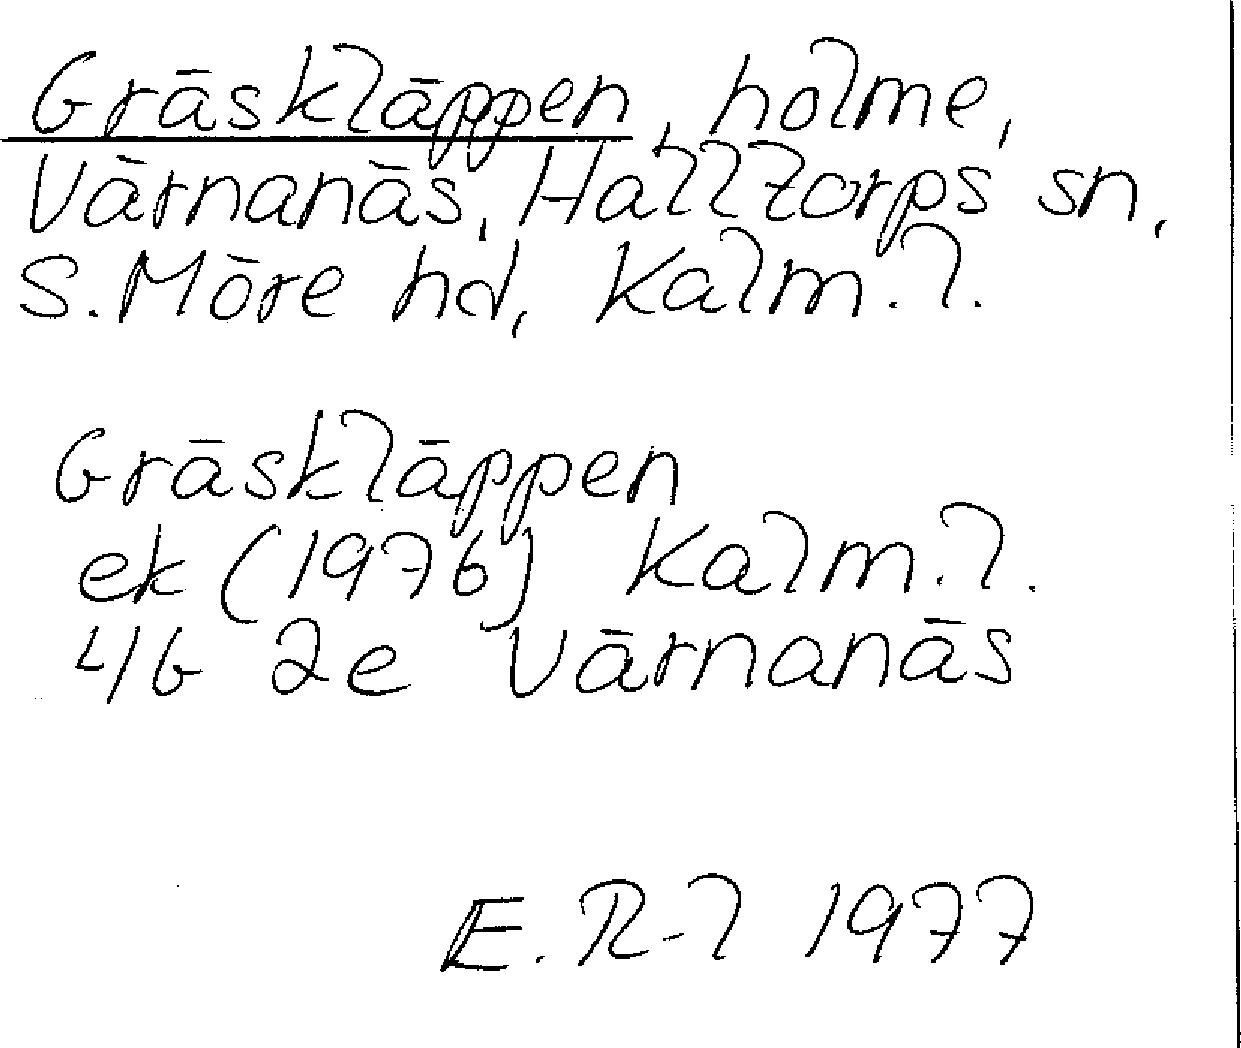 Gräskläppen, holme,
Värnanäs, Halltorps sn,
S. Möre hd, Kalm. l.
Gräskläppen
ek (1976) Kalm. l.
4G 2e Värnanäs
E. R-l 1977